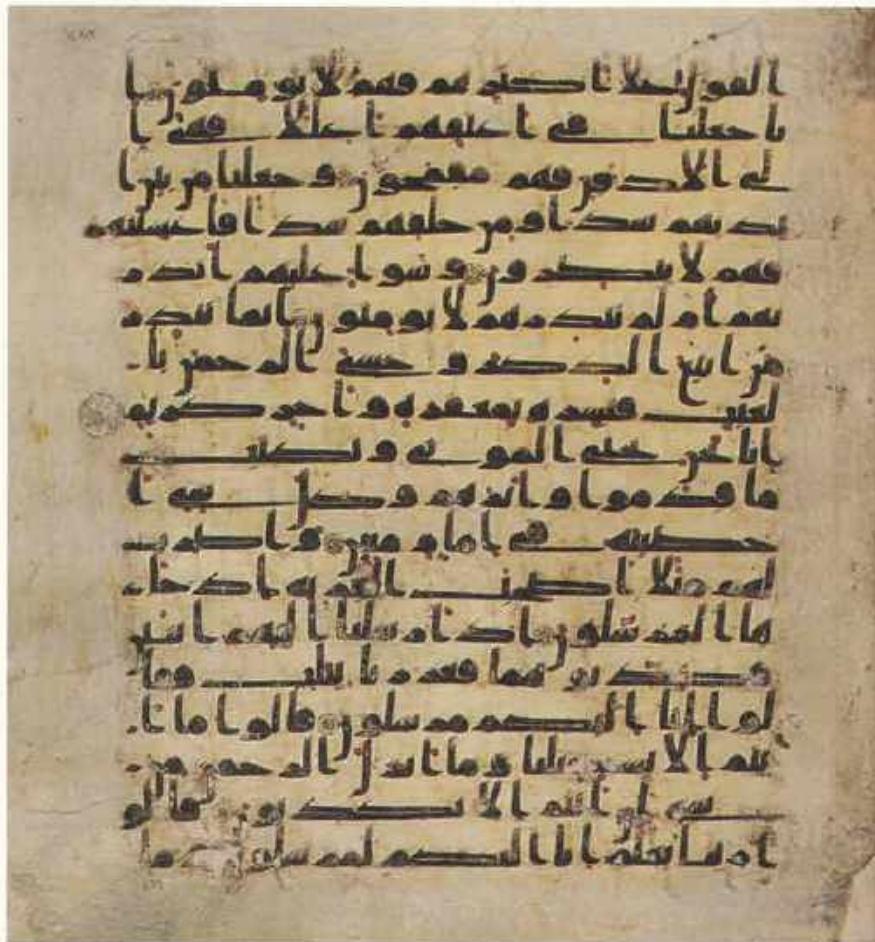 القول على اكثرهم فهم لا يومنون ا
نا جعلنا في اعنقهم اغللا فهي ا
لى الاذقن فهم مقمحون وجعلنا من بين ا
يديهم سدا ومن خلفهم سدا فاغشينهم
فهم لا يبصرون وسوا عليهم انذر
تهم ام لم تنذرهم لا يومنون انما تنذر
من اتبع الذكر وخشي الرحمن با
لغيب فبشره بمغفرة واجر كريم
انا نحن نحي الموتى ونكتب
ما قدموا واثرهم وكل شي ا
حصينه في امام مبين واضرب
لهم مثلا اصحب القرية اذ جا
ها المرسلون اذ ارسلنا اليهم اثنين
فكذبوهما فعززنا بثلث فقا
لوا انا اليكم مرسلون قالوا ما ا
نتم الا بشر مثلنا وما انزل الرحمن من
شي ان انتم الا تكذبون قالو
ا ربنا يعلم انا اليكم لمرسلون وما